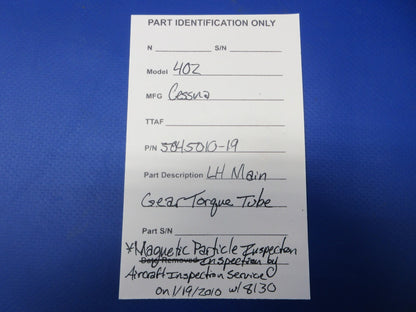 PART IDENTIFICATION ONLY
N S/N
Model 402
MFG Cessna
TTAF
P/N 5045010-19
Part Description LH Main
Gear Torque Tube
Part S/N
*Magnetic Particle Inspection
Date Removed Inspection by
Aircraft Inspection Service
on 1/19/2010 w/ 8130